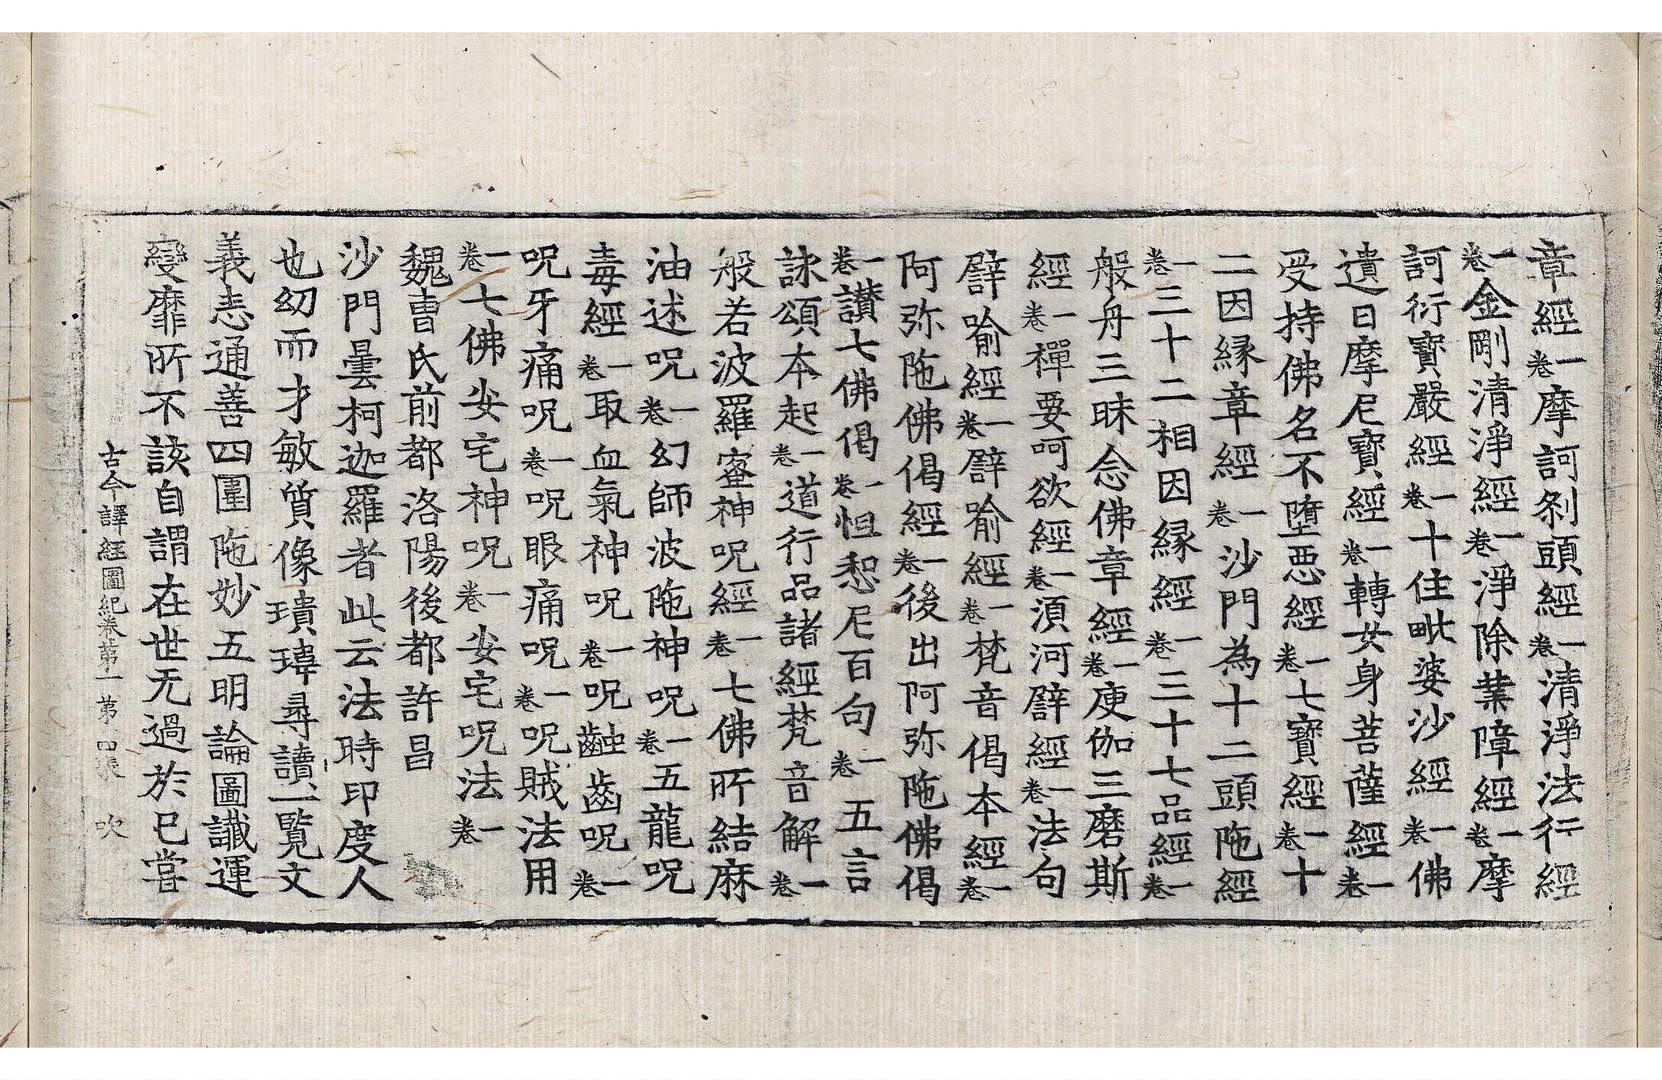 章經一卷摩訶剎頭經一卷清淨法行經
一卷金剛清淨經一卷淨除業障經一卷摩
訶衍寶嚴經一卷十住毗婆沙經一卷佛
遺日摩尼寶經一卷轉女身菩薩經一卷
受持佛名不墮惡經一卷七寶經一卷十
二因緣章經一卷沙門為十二頭陁經
一卷三十二相因緣經一卷三十七品經一卷
般舟三昧念佛章經一卷庾伽三磨斯
經一卷禪要呵欲經一卷湏河譬經一卷法句
譬喻經一卷譬喻經一卷梵音偈本經一卷
阿弥陁佛偈經一卷後出阿弥陁佛偈
一卷讃七佛偈一卷怛惒尼百句一卷五言
詠頌本起一卷道行品諸經梵音解一卷
般若波羅蜜神呪經一卷七佛所結麻
油述呪一卷幻師波陁神呪一卷五龍呪
毒經一卷取血氣神呪一卷呪齇齒呪一卷
呪牙痛呪一卷呪眼痛呪一卷呪賊法用
一卷七佛安宅神呪一卷安宅呪法一卷
魏曹氏前都洛陽後都許昌
沙門曇柯迦羅者此云法時印度人
也幼而才敏質像瓌瑋尋讀一覧文
義悉通善四圍陁妙五明論圖讖運
變靡所不該自謂在世无過於已嘗
古今譯經圖紀卷第一 第四張 吹